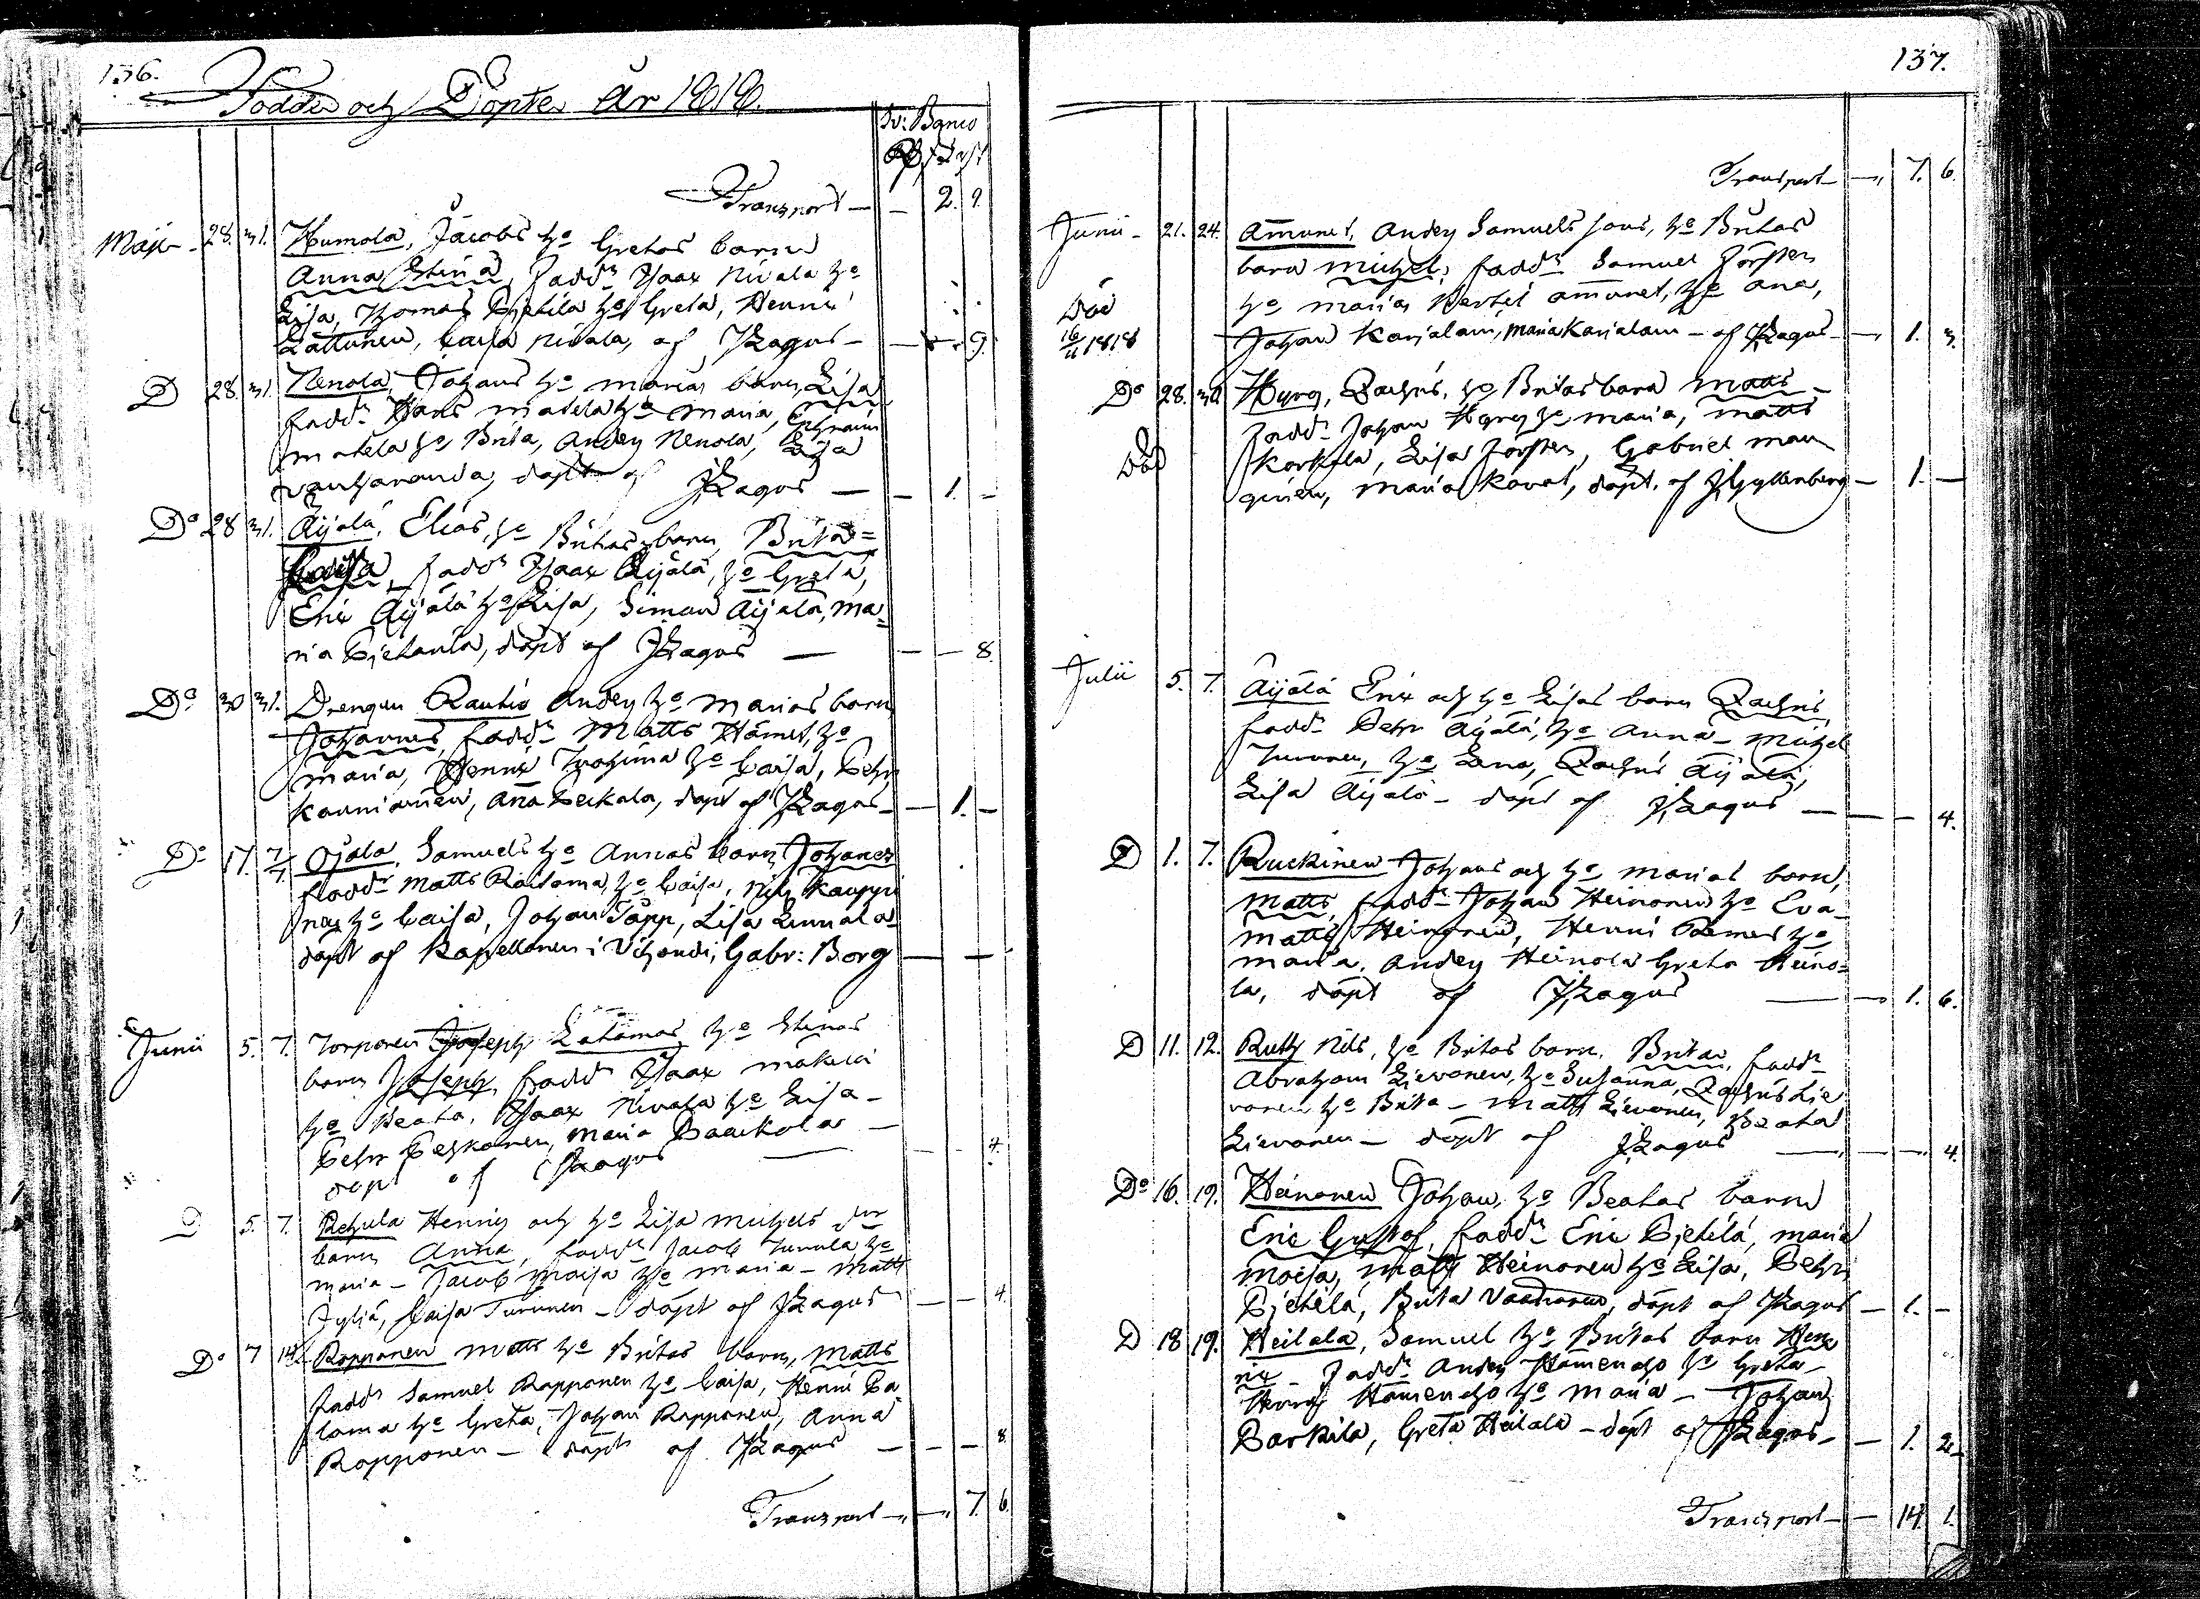 136.
Födde och Döpte År 1818.
Sv: Banco
Transport — — 2. 9.
Maji 28. 31. Humola, Jacobs h:o Gretas barn
Anna Stina, fadd:r Isaax Nivala h:o
Lisa, Thomas Pjetilä h:o Greta, Henric
Lattunen, Caisa Nivala, af JZagus — 9.
D 28. 31. Nenola, Johans h:o Marias barn, Lisa
fadd:r Hans Matela h:o Maria, Ephraim
Matela h:o Brita, Anders Nenola, Lisa
döpt af JZagus — — 1. —
D:o 28 31. Äijälä, Elias, h:o Britas barn, Brita=
Caisa, fadd:r Isaax Äijälä, h:o Greta,
Eric Äijälä h:o Lisa, Simon Äijälä, Ma=
ria Pjetarila, döpt af JZagus — — — 8.
D:o 30 31. Drengen Rautio Anders h:o Marias barn
Johannes, fadd:r Matts Hämet, h:o
Maria, Henric h:o Caisa, Pehr
Kauniainen, Anna Peckala, döpt af JZagus — — 1. —
D:o 17. 7. Ojala, Samuels h:o Annas barn Johanes
fadd:r Matts Raitama, h:o Caisa, Nils Kauppi
nen h:o Caisa, Johan Topp, Lisa Linnala
döpt af Kapellanen i Vihandi, Gabr: Borg — —
Junii 5. 7. Torparen Joseph Latomas h:o Stinas
barn Joseph, fadd:r Isaax Makela
h:o Beata, Isaax Nivala h:o Lisa —
Pehr Peskonen, Maria Baackola —
döpt af JZagus — — — 4.
D 5. 7. Rehula Henric och h:o Lisa Michels d:r
barn Anna, fadd:r Jacob Junnila h:o
Maria — Jacob Moisa h:o Maria — Matts
Jyljä, Caisa Turunen — döpt af JZagus — — 4.
D:o 7 14. Ropponen Matts h:o Britas barn, Matts
fadd:r Samuel Ropponen h:o Caisa, Henric Pa
loma h:o Greta, Johan Ropponen, Anna
Ropponen — döpt af JZagus — — — 8.
Transport — — 7. 6.
137.
Transport — 7. 6.
Junii — 21. 24. Ammunet, Anders Samuels sons, h:o Britas
barn Michel, fadd:r Samuel Förster
h:o Maria, Hertel Ammunet, h:o Ana,
Johan Karjalain, Maria Karjalain — af JZagus — 1. 3.
Död
16/11 1818
D:o 28. 30. Hyry, Zachris, h:o Britas barn Matts
fadd:r Johan Hyry h:o Maria, Matts
Korkela, Lisa Förster, Gabriel Man
ginen, Maria Kovat, döpt. af J Gyllenberg — 1. —
Död
Julii 5. 7. Äijälä Eric och h:o Lisas barn Zachris,
fadd:r Pehr Äijälä, h:o Anna — Michel
Turunen, h:o Lena, Zachris Äijälä,
Lisa Äijälä — döpt af JZagus — — — 4.
D 1. 7. Ruckinen Johans och h:o Marias barn,
Matts, fadd:r Johan Heinonen h:o Eva —
Matts Heinonen, Henric Remes h:o
Maria, Anders Heinola Greta Heino=
la, döpt af JZagus — — 1. 6.
D 11. 12. Ruth Nils, h:o Britas barn, Brita, fadd:r
Abraham Lievonen, h:o Susanna, Zachris Lie
vonen h:o Brita — Matts Lievonen, Beata
Lievonen — döpt af JZagus — — — 4.
D:o 16. 19. Heinonen Johan, h:o Beatas barn
Eric Gustaf, fadd:r Eric Pjetilä, Maria
Moisa, Matts Heinonen h:o Lisa, Pehr
Pjetilä, Brita döpt af JZagus — 1. —
D 18 19. Heilala, Samuel h:o Britas barn Hen
ric — fadd:r Anders Hamenoja h:o Greta —
Henric Hamenoja h:o Maria — Johan
Barkila, Greta Heilala — döpt af JZagus — — 1. 2
Transport — — 14. 1.